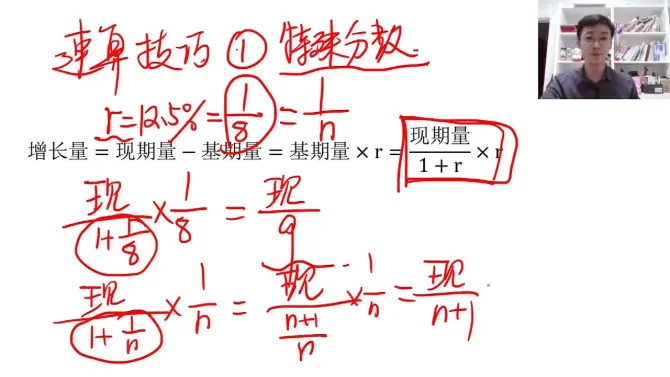 速算技巧 ① 特殊分数.
r=12.5%=1/8=1/n
增长量=现期量−基期量=基期量×r=现期量/(1+r)×r
现/(1+1/8)×1/8=现/9
现/(1+1/n)×1/n=现/((n+1)/n)×1/n=现/(n+1)